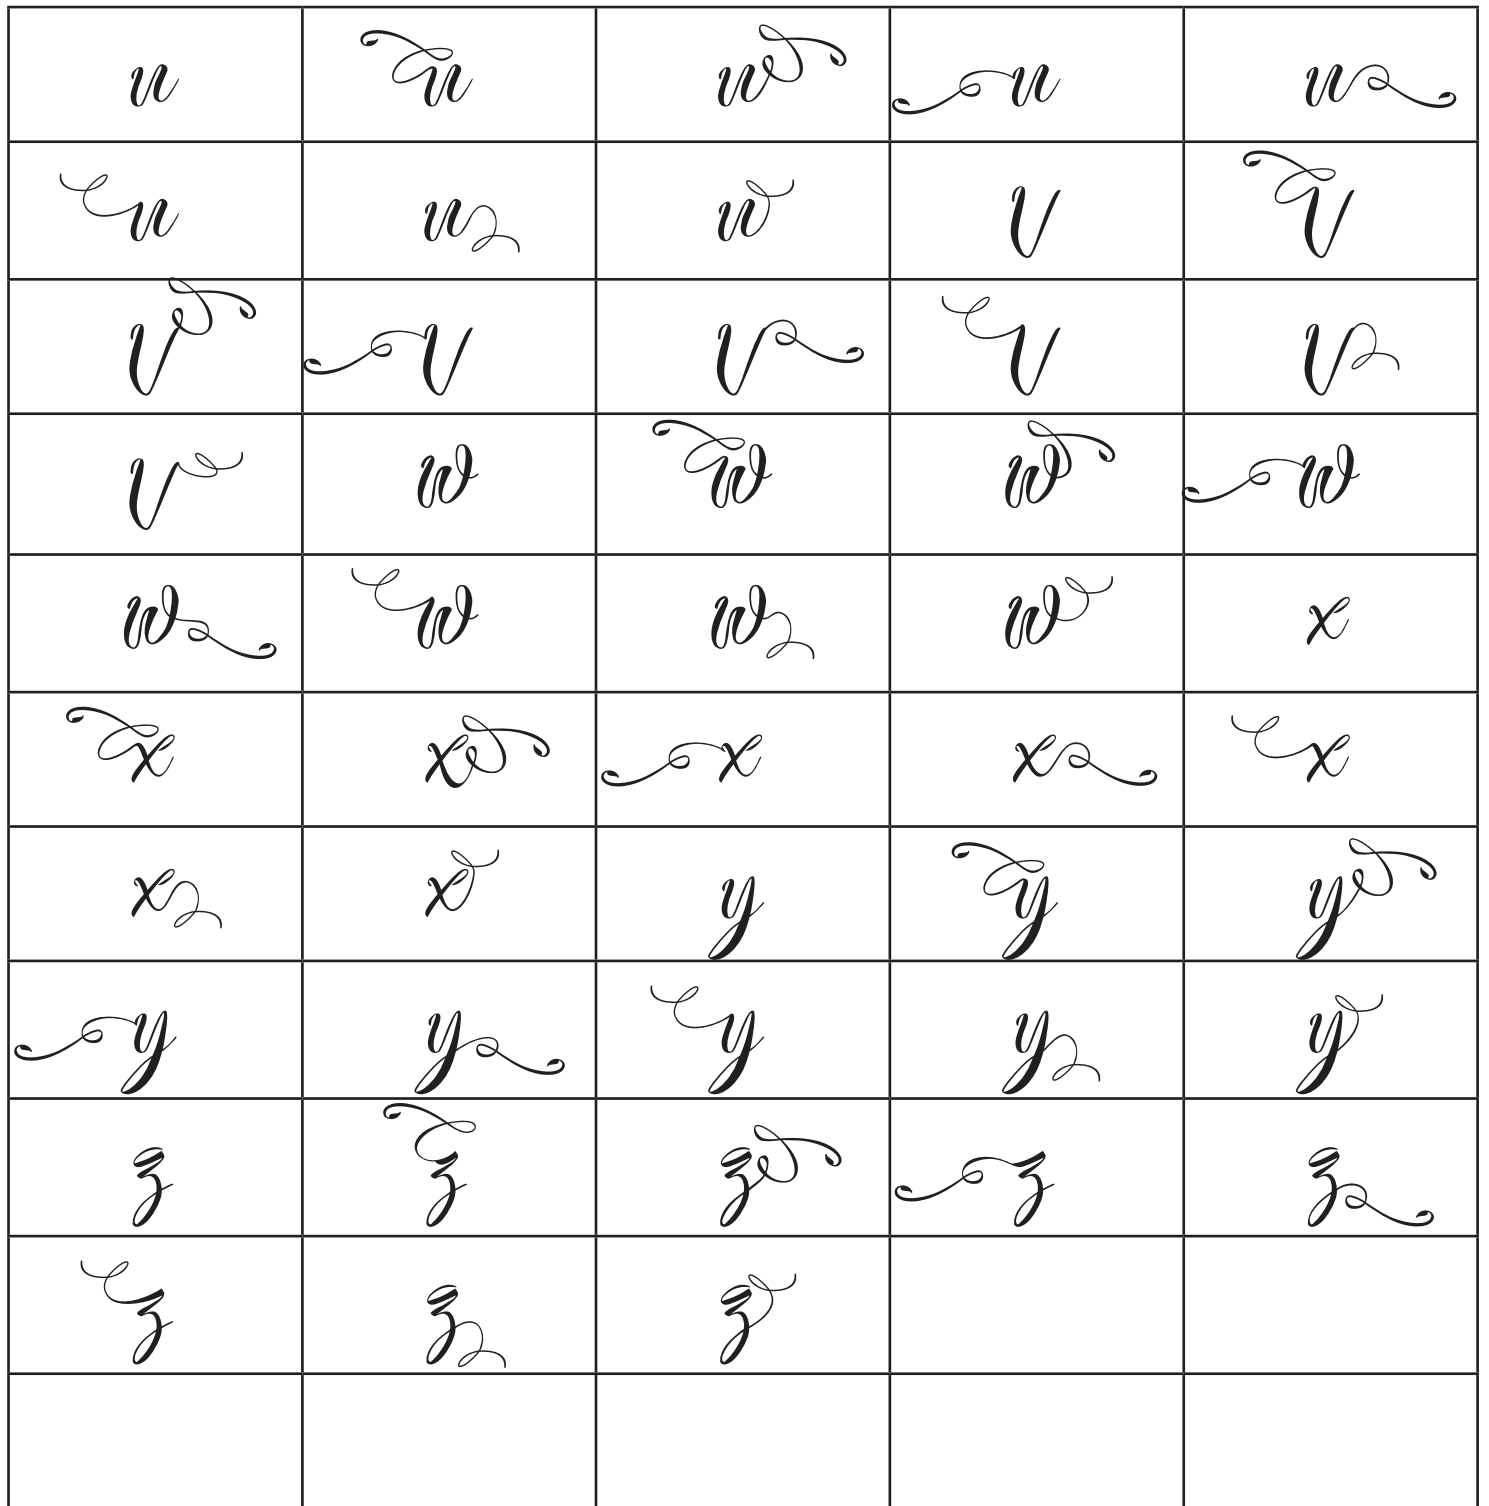 u u u u u
u u u v v
v v v v v
v w w w w
w w w w x
x x x x x
x x y y y
y y y y y
z z z z z
z z z